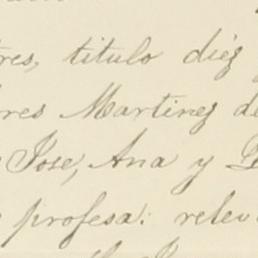 tres, titulo diéz
res Martinez de
Jose, Ana y
profesa: relev